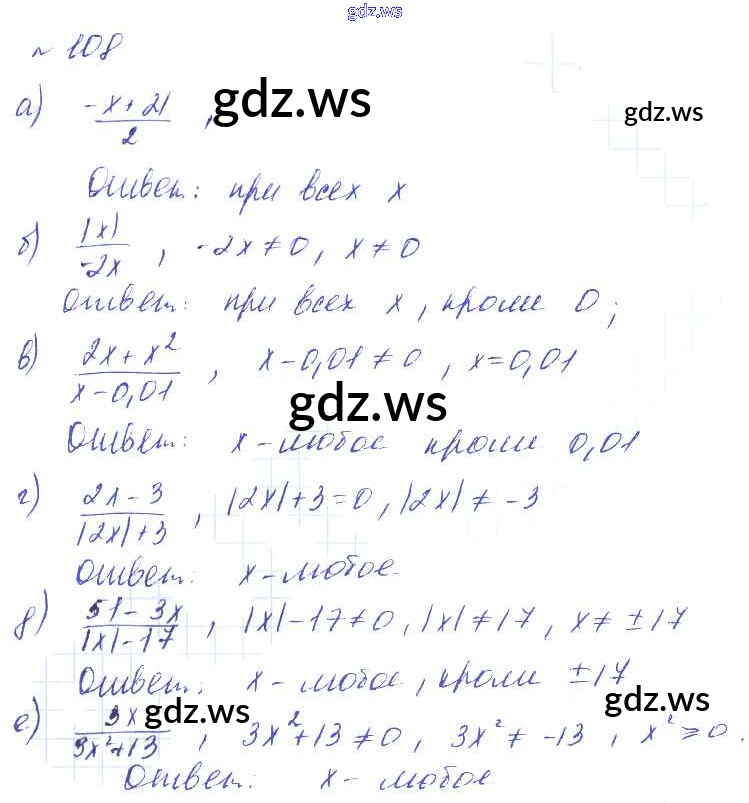 gdz.ws
№ 108
а) -x+21/2 , gdz.ws gdz.ws
Ответ: при всех x
б) |x|/-2x , -2x≠0, x≠0
Ответ: при всех x, кроме 0;
в) 2x+x²/x-0,01 , x-0,01≠0, x=0,01
gdz.ws
Ответ: x-любое кроме 0,01
г) 2x-3/|2x|+3 , |2x|+3=0, |2x|≠-3
Ответ: x-любое
д) 51-3x/|x|-17 , |x|-17≠0, |x|≠17, x≠±17
Ответ: x-любое, кроме ±17
gdz.ws gdz.ws
е) 3x/3x²+13 , 3x²+13≠0, 3x²≠-13, x²≥0.
Ответ: x-любое